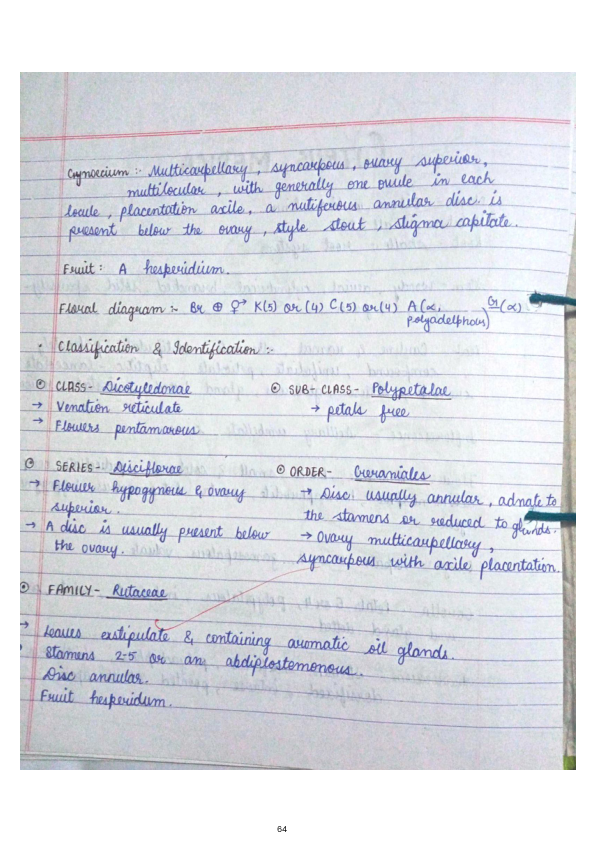 Gynoecium :- Multicarpellary, syncarpous, ovary superior,
multilocular, with generally one ovule in each
locule, placentation axile, a nutiferous annular disc is
present below the ovary, style stout stigma capitate.
Fruit: A hesperidium.
Floral diagram :- Br ⊕ ⚥ K(5) or (4) C(5) or (4) A(α, polyadelphous) G(α)
• Classification & Identification :-
⊙ CLASS- Dicotyledonae
→ Venation reticulate
→ Flowers pentamarous
⊙ SUB-CLASS- Polypetalae
→ petals free
⊙ SERIES- Disciflorae
→ Flower hypogynous & ovary
superior.
→ A disc is usually present below
the ovary.
⊙ ORDER- Gereniales
→ Disc usually annular, adnate to
the stamens or reduced to glands.
→ Ovary multicarpellary,
syncarpous with axile placentation.
⊙ FAMILY- Rutaceae
→ Leaves exstipulate & containing aromatic oil glands.
Stamens 2-5 or an abdiplostemonous.
Disc annular.
Fruit hesperidum.
64